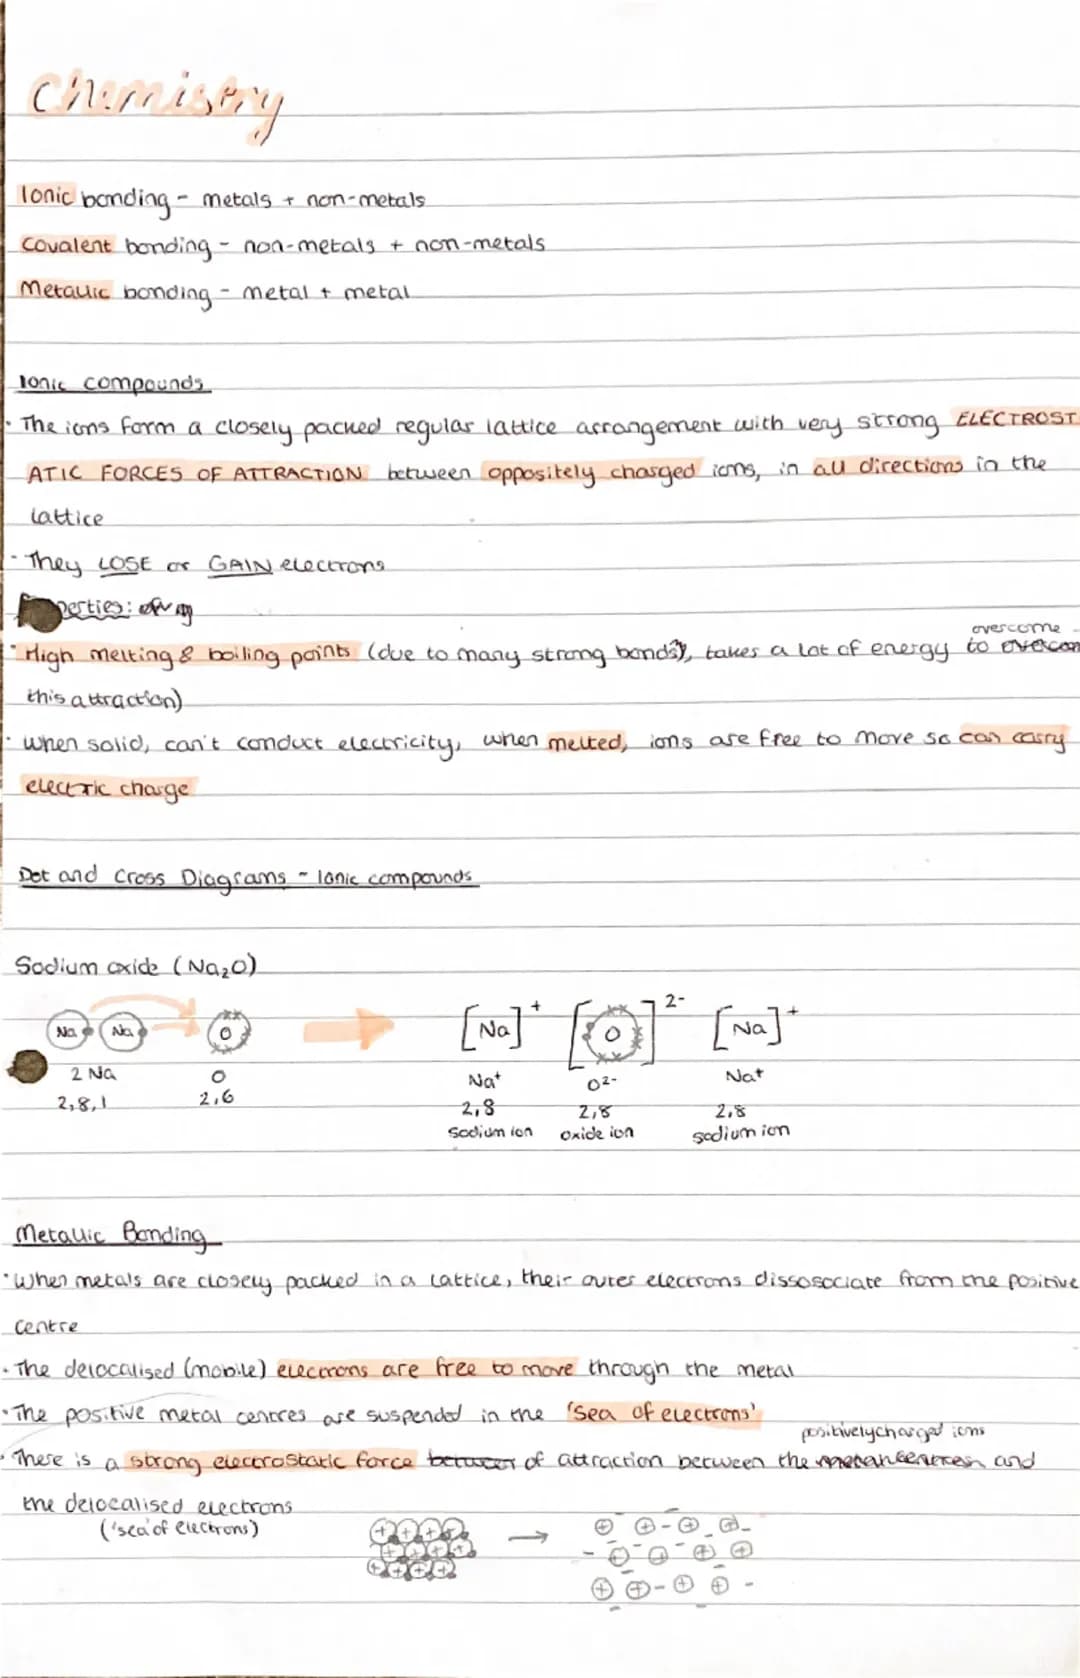 Chemistry
Ionic bonding - metals + non-metals
Covalent bonding - non-metals + non-metals
Metallic bonding - metal + metal
Ionic compounds
· The ions form a closely packed regular lattice arrangement with very strong ELECTROST
ATIC FORCES OF ATTRACTION between oppositely charged ions, in all directions in the
lattice
- They LOSE or GAIN electrons
perties:
overcome
· High melting & boiling points (due to many strong bonds), takes a lot of energy to overcom
this attraction)
· When solid, can't conduct electricity, when melted, ions are free to move so can carry
electric charge
Dot and Cross Diagrams - Ionic compounds
Sodium oxide (Na₂O)
Na Na O [Na]⁺ [O]²⁻ [Na]⁺
2 Na O Na⁺ O²⁻ Na⁺
2,8,1 2,6 2,8 2,8 2,8
sodium ion oxide ion sodium ion
Metallic Bonding
· When metals are closely packed in a lattice, their outer electrons dissosociate from the positive
centre
· The delocalised (mobile) electrons are free to move through the metal
· The positive metal centres are suspended in the 'sea of electrons'
positively charged ions
· There is a strong electrostatic force between of attraction between the and
the delocalised electrons
('sea' of electrons)